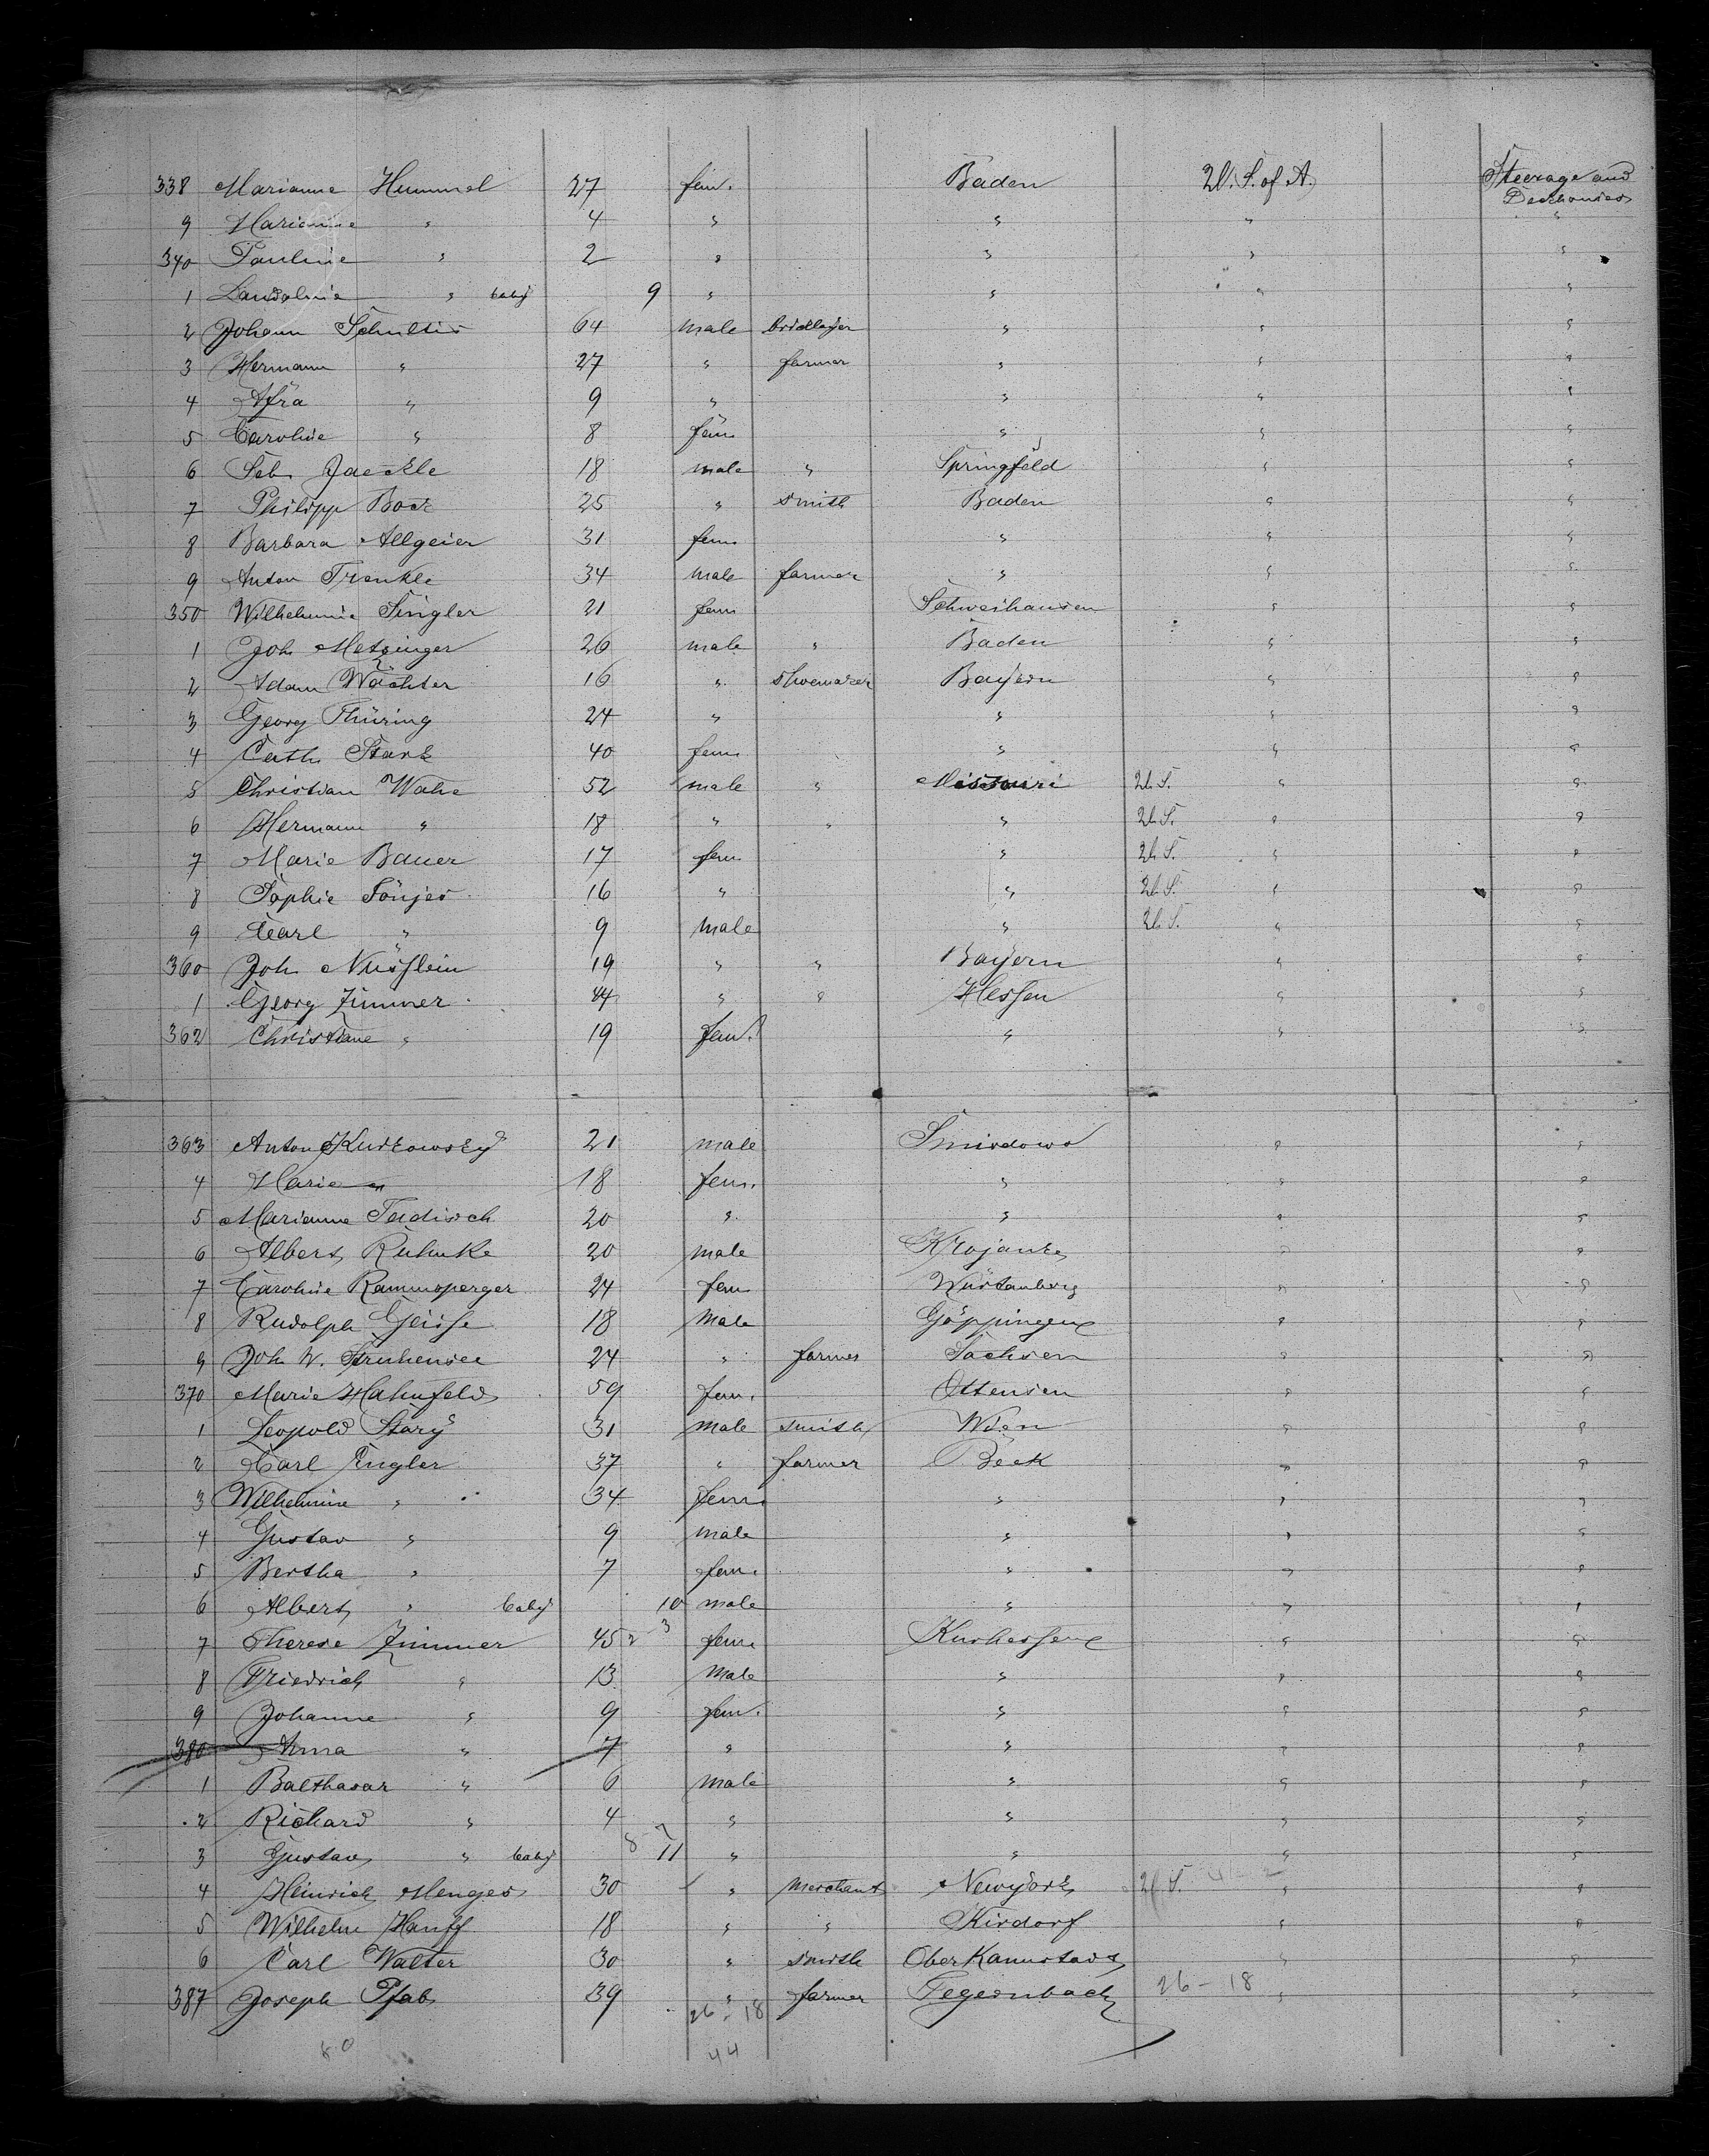 338 Marianne Hummel 27 fem. Baden U. S. of A. Steerage and Deckhouses
9 Marianne " 4 " " " "
340 Pauline " 2 " " " "
1 Landoline " baby 9 " " " "
2 Johann Schultis 64 male bricklayer " " "
3 Hermann " 27 " farmer " " "
4 Afra " 9 " " " "
5 Caroline " 8 fem " " "
6 Seb. Jaeckle 18 male " Springfeld " "
7 Philipp Bock 25 " smith Baden " "
8 Barbara Allgeier 31 fem. " " "
9 Anton Trenkle 34 male farmer " " "
350 Wilhelmine Singler 21 fem Schweihausen " "
1 Joh. Metzinger 26 male " Baden " "
2 Adam Wächter 16 " shoemaker Bayern " "
3 Georg Thüring 24 " " " "
4 Cath. Stark 40 fem. " " "
5 Christian Wahe 52 male " Missouri U. S. " "
6 Hermann " 18 " " " U. S. " "
7 Marie Bauer 17 fem. " U. S. " "
8 Sophie Tönjes 16 " " U. S. " "
9 Carl " 9 male " U. S. " "
360 Joh. Nüsslein 19 " " Bayern " "
1 Georg Zimmer 44 " " Hessen " "
362 Christiane " 19 fem. " " "
363 Anton Kurkowsky 21 male " "
4 Marie " 18 fem. " " "
5 Marianne 20 " " " "
6 Albert Ruhnke 20 male Krojanke " "
7 Caroline Rammsperger 24 fem Würtemberg " "
8 Rudolph Geisse 18 male Göppingen " "
9 Joh. W. Struhensee 24 " farmer Sachsen " "
370 Marie Hahnfeld 59 fem. Ottensen " "
1 Leopold Stary 31 male smith Wien " "
2 Carl Engler 37 " farmer Beek " "
3 Wilhelmine " 34 fem. " " "
4 Gustav " 9 male " " "
5 Bertha " 7 fem. " " "
6 Albert " baby 10 male " " "
7 Therese Zimmer 45 2 3 fem. Kurhessen " "
8 Friedrich " 13 male " " "
9 Johanne " 9 fem. " " "
380 Anna " 7 " " " "
1 Balthasar " 6 male " " "
2 Richard " 4 " " " "
3 Gustav " baby 8 7 11 " " " "
4 Heinrich Menges 30 " merchant Newyork U. S. " "
5 Wilhelm Hanff 18 " " Kirdorf " "
6 Carl Walter 30 " smith Ober Kamstadt " "
387 Joseph Pfab 39 " farmer Tegernbach 26 - 18 " "
26 - 18
80 44